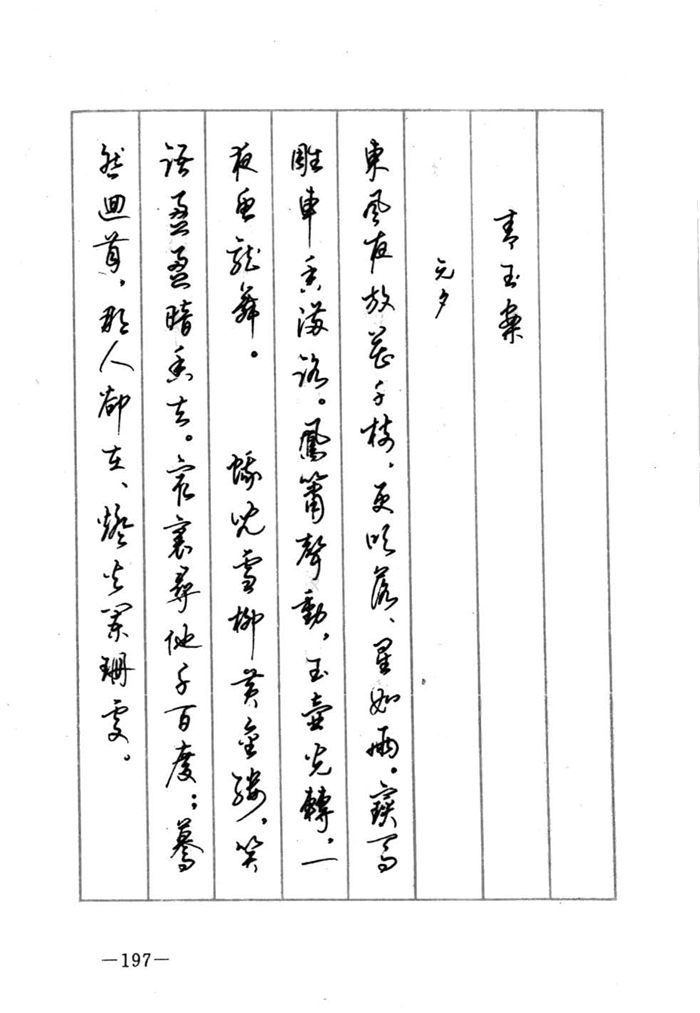 青玉案
元夕
東風夜放花千樹，更吹落、星如雨。寶馬
雕車香滿路。鳳簫聲動，玉壺光轉，一
夜魚龍舞。　蛾兒雪柳黃金縷，笑
語盈盈暗香去。衆裏尋他千百度；驀
然迴首，那人卻在、燈火闌珊處。
—197—